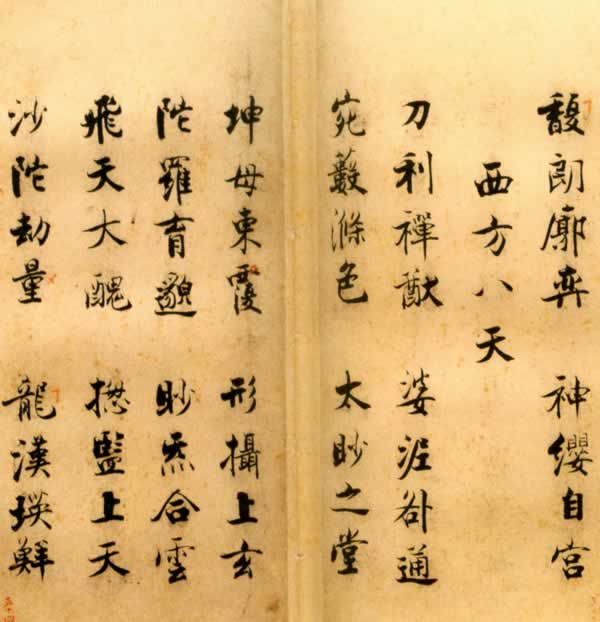 馥朗廓奕 神纓自宮
西方八天
刀利禪猷 婆泥咎通
宛藪滌色 太眇之堂
坤母東覆 形攝上玄
陀羅育邈 眇炁合雲
飛天大醜 揔監上天
沙陀劫量 龍漢瑛鮮